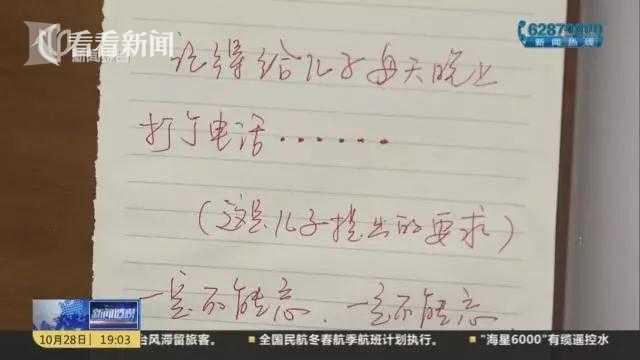 看看新闻
新闻热线
记得给儿子每天晚上
打个电话......
(这是儿子提出的要求)
一定不能忘、一定不能忘
新闻透视
10月28日 19:03 台风滞留旅客。 ■ 全国民航冬春航季航班计划执行。 ■ “海星6000”有缆遥控水